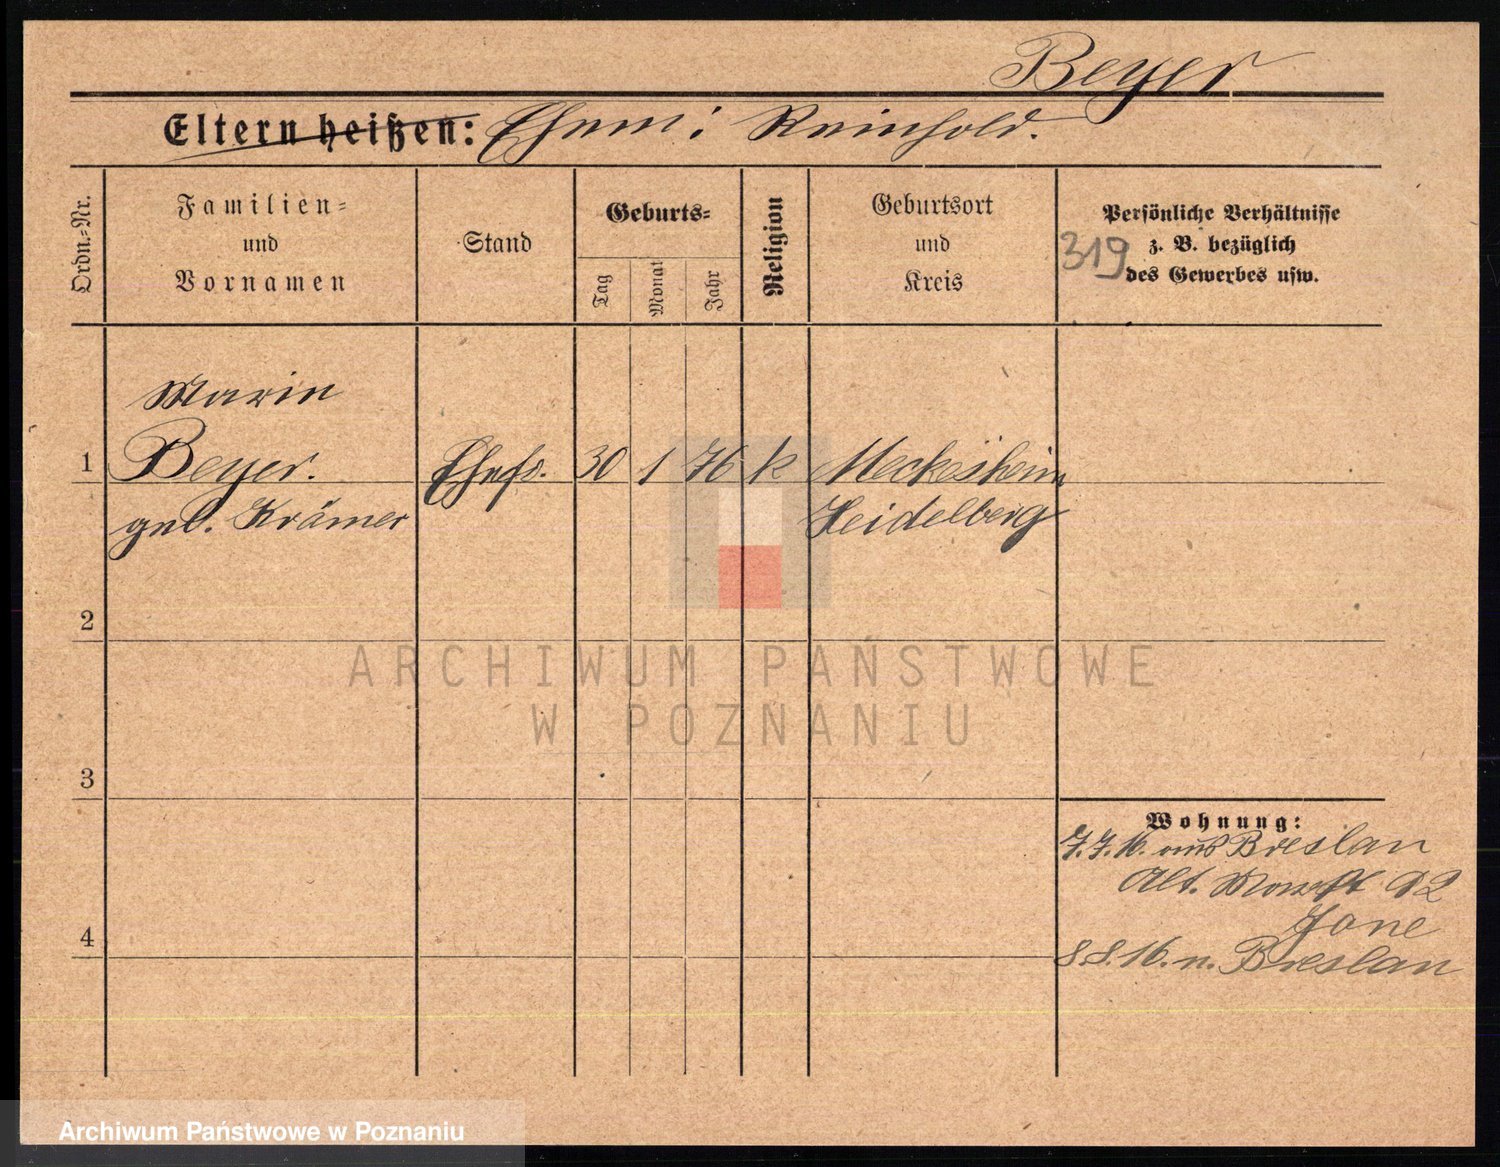 Beyer
Eltern heißen: Ehem: Reinhold.
Ordn.-Nr.
Familien-
und
Vornamen
Stand
Geburts-
Tag
Monat
Jahr
Religion
Geburtsort
und
Kreis
Persönliche Verhältnisse
z. B. bezüglich
des Gewerbes usw.
319
Marie
1 Beyer. Ehefr. 30 1 76 k Meckesheim
geb. Krämer Heidelberg
2
3
4
Wohnung:
7.7.16. aus Breslau
Alt. Markt 92
8.8.16. n. Breslau
ARCHIWUM PAŃSTWOWE
W POZNANIU
Archiwum Państwowe w Poznaniu